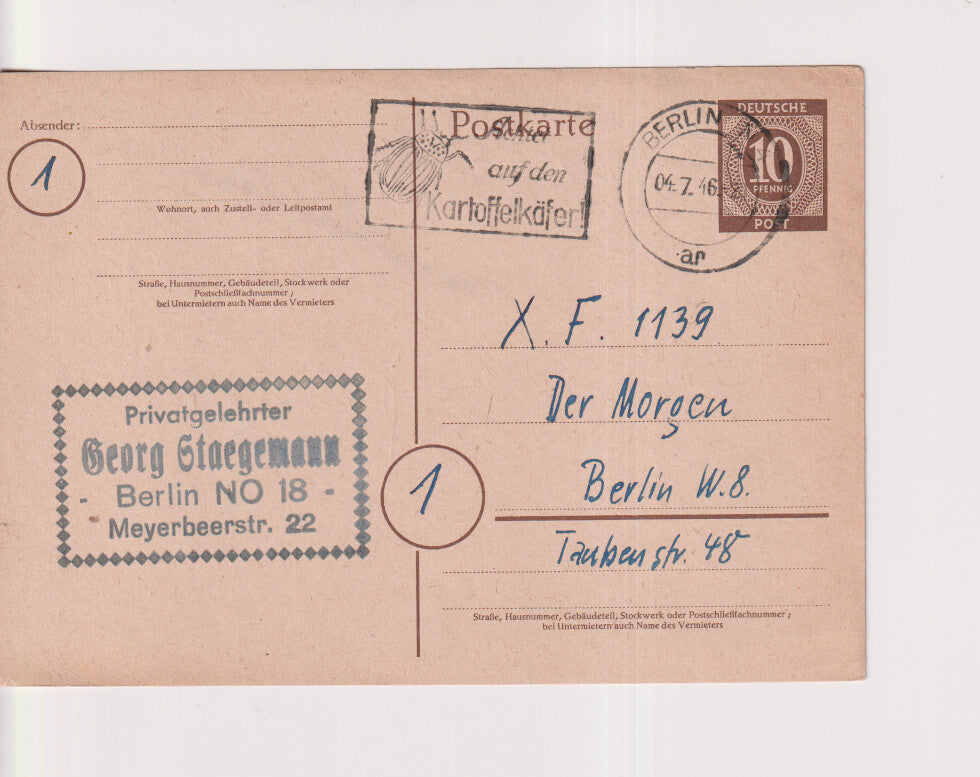 Absender:
1
Wohnort, auch Zustell- oder Leitpostamt
Straße, Hausnummer, Gebäudeteil, Stockwerk oder
Postschließfachnummer;
bei Untermietern auch Name des Vermieters
Postkarte
Achtet
auf den
Kartoffelkäfer!
BERLIN
04.7.46
ar
DEUTSCHE
10
PFENNIG
POST
X. F. 1139
Der Morgen
Berlin W. 8.
Taubenstr. 48
Privatgelehrter
Georg Staegemann
- Berlin NO 18 -
Meyerbeerstr. 22
1
Straße, Hausnummer, Gebäudeteil, Stockwerk oder Postschließfachnummer;
bei Untermietern auch Name des Vermieters